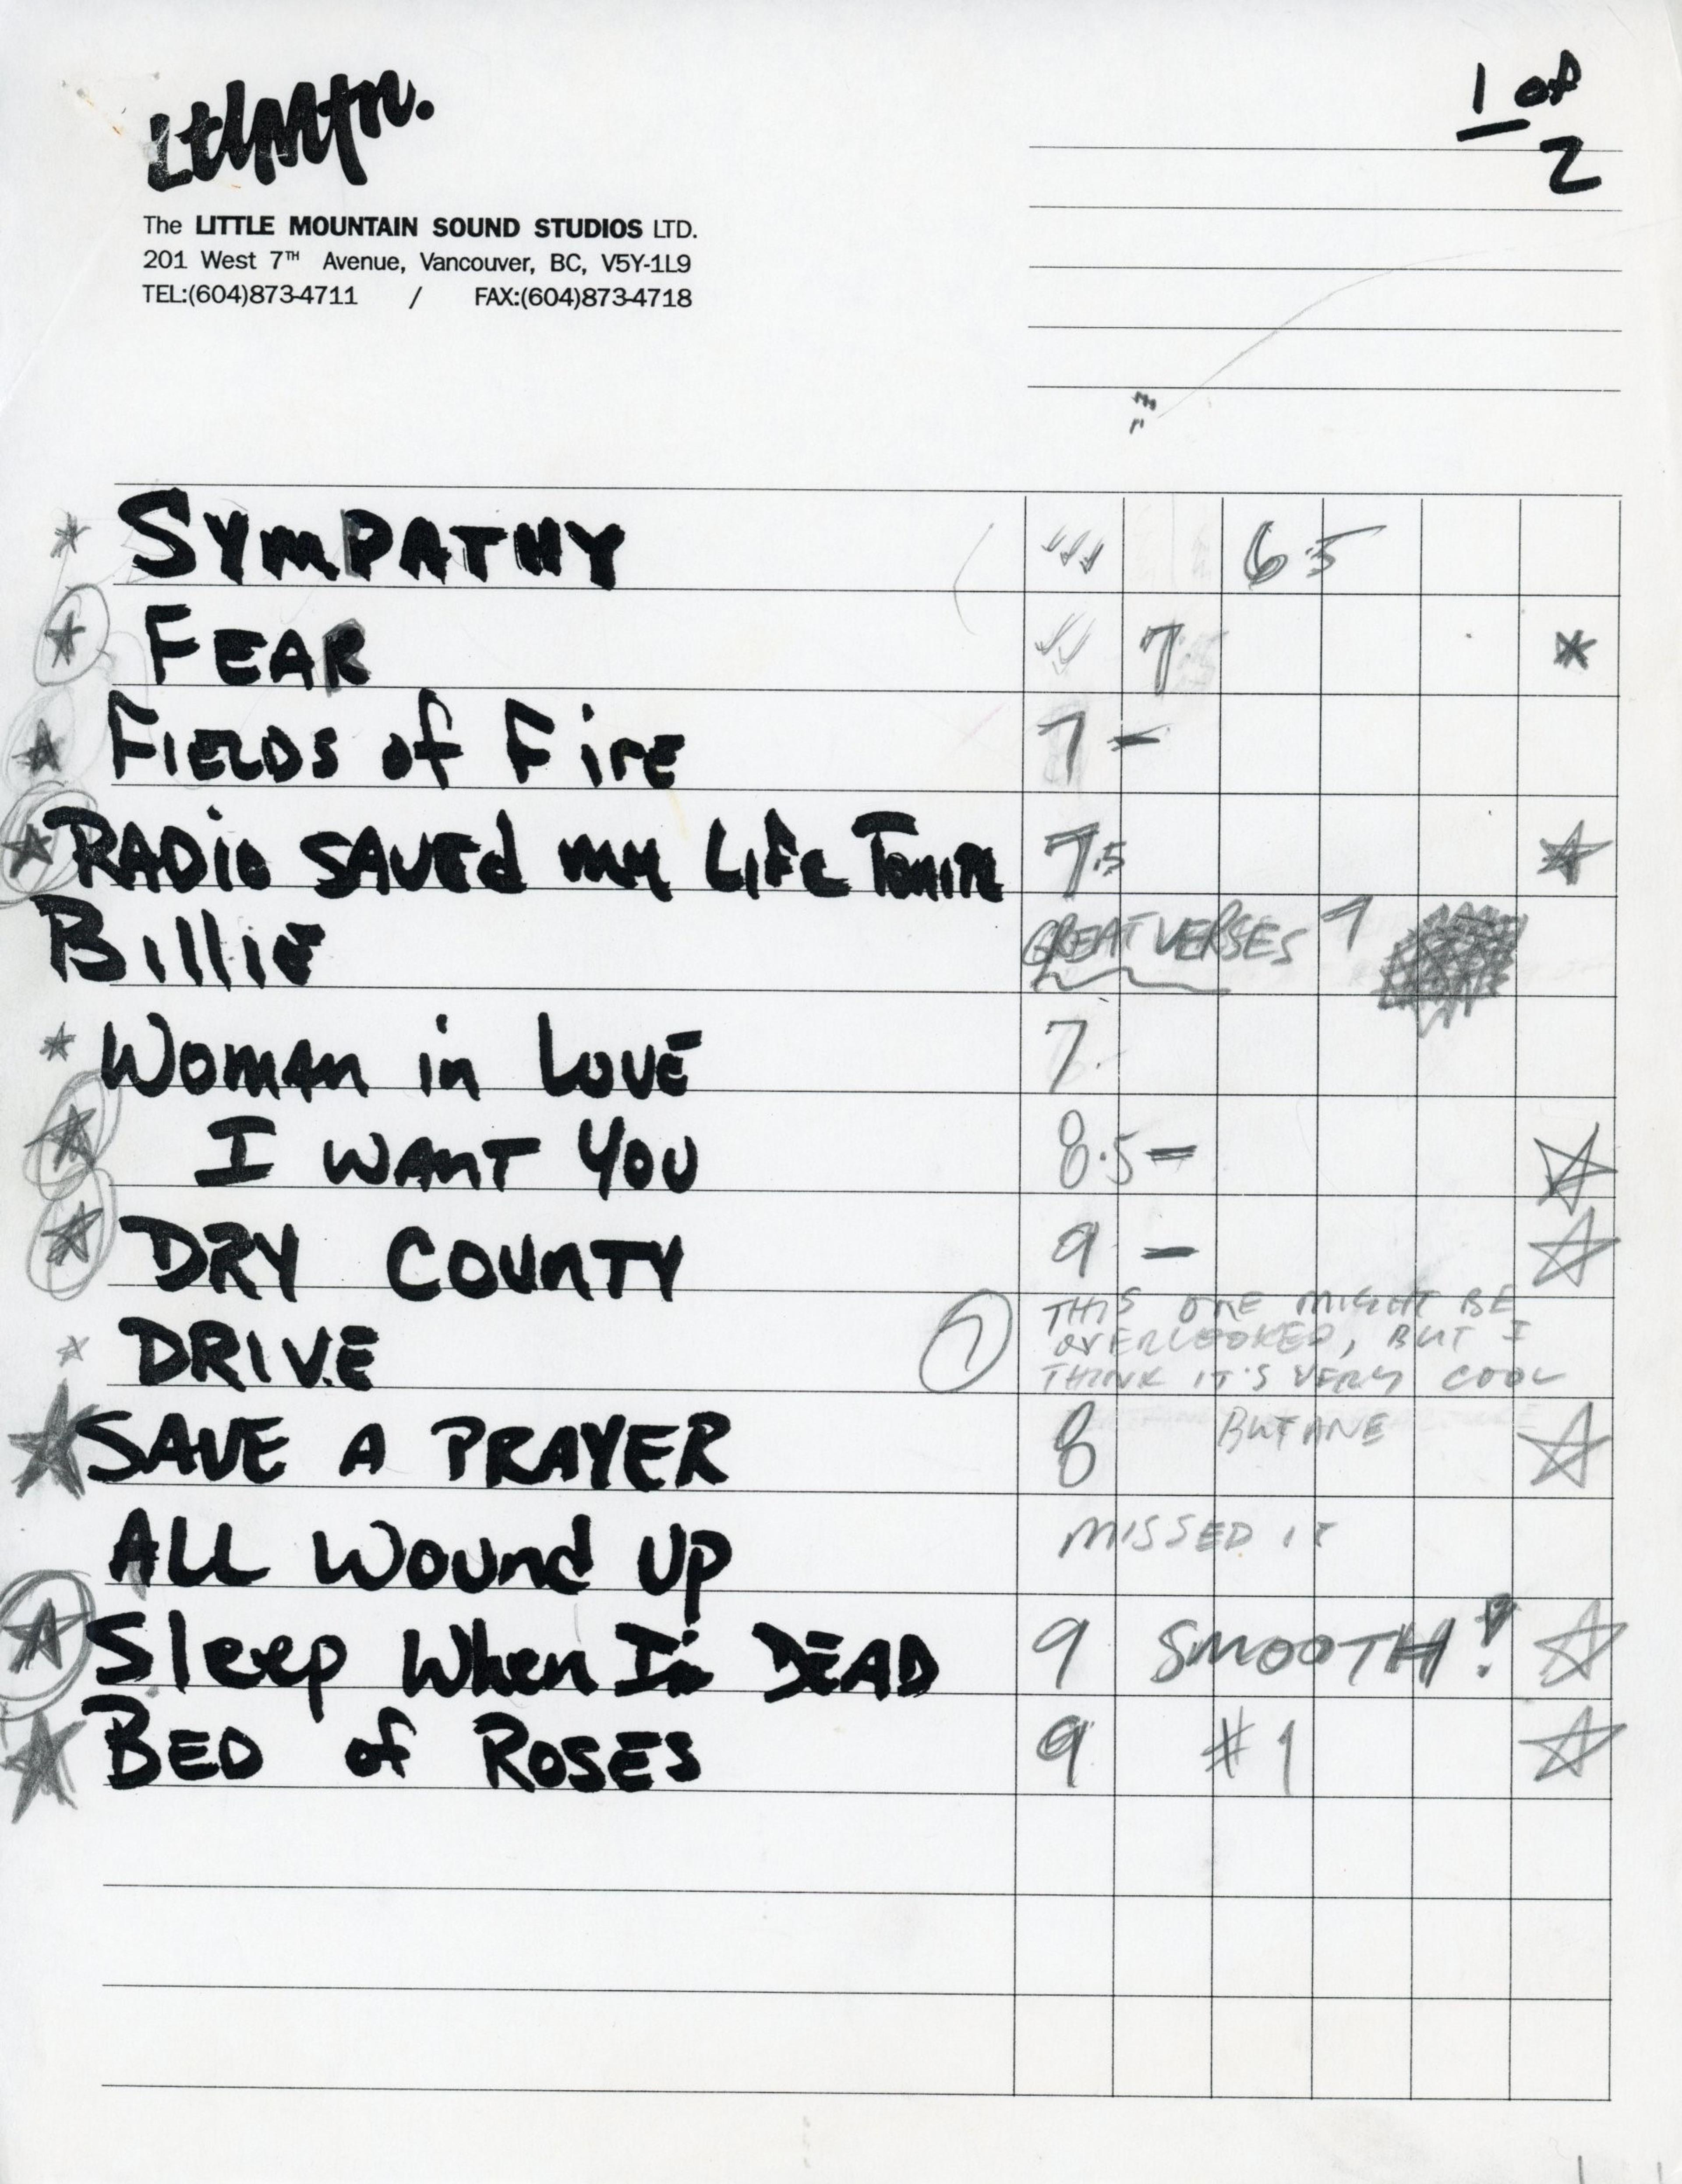 1 of
2
LtlMtn.
The LITTLE MOUNTAIN SOUND STUDIOS LTD.
201 West 7TH Avenue, Vancouver, BC, V5Y-1L9
TEL:(604)873-4711 / FAX:(604)873-4718
SYMPATHY 6.5
FEAR 7
FIELDS of FirE 7 -
RADio SAVEd my LiFe TONITE 7.5
BilliE GREAT VERSES 7
Woman in LOVE 7
I WANT YOU 8.5 -
DRY COUNTY 9 -
DRIVE 7 THIS ONE MIGHT BE
OVERLOOKED, BUT I
THINK IT'S VERY COOL
SAVE A PRAYER 8 BUTANE
ALL Wound Up MISSED IT
Sleep When I'm DEAD 9 SMOOTH!
BED of ROSES 9 #1